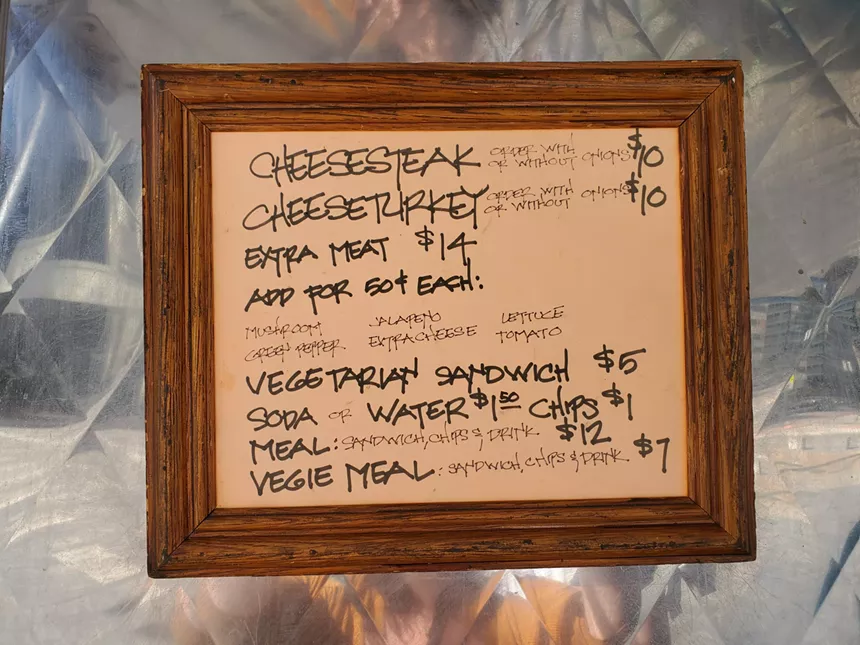 CHEESESTEAK ORDER WITH OR WITHOUT ONIONS $10
CHEESETURKEY ORDER WITH OR WITHOUT ONIONS $10
EXTRA MEAT $14
ADD FOR 50¢ EACH:
MUSHROOM JALAPENO LETTUCE
GREEN PEPPER EXTRA CHEESE TOMATO
VEGETARIAN SANDWICH $5
SODA OR WATER $1.50 CHIPS $1
MEAL: SANDWICH, CHIPS & DRINK $12
VEGIE MEAL: SANDWICH, CHIPS & DRINK $7